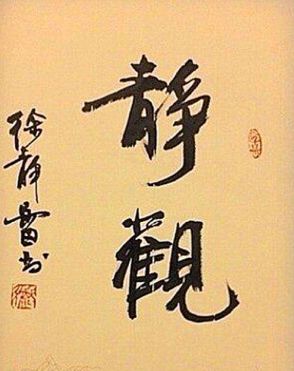 靜觀
徐静蕾书